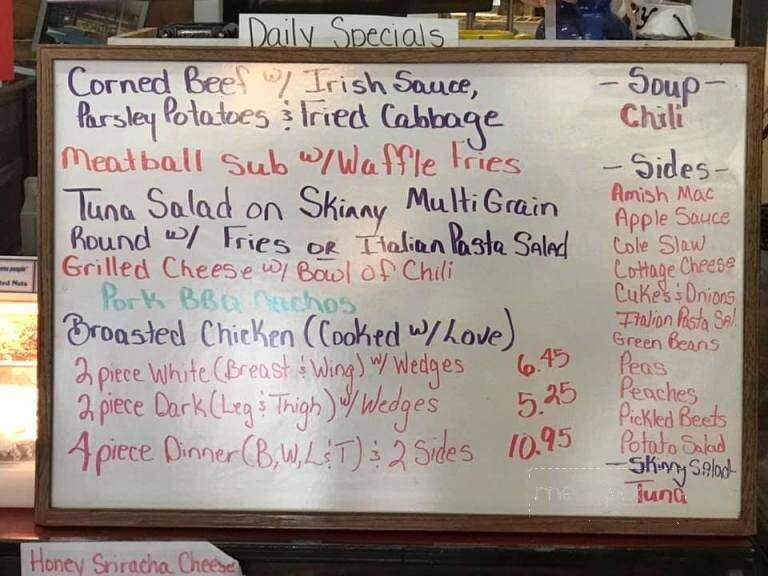 Daily Specials
Corned Beef w/ Irish Sauce,
Parsley Potatoes & Fried Cabbage
Meatball Sub w/ Waffle Fries
Tuna Salad on Skinny Multi Grain
Round w/ Fries OR Italian Pasta Salad
Grilled Cheese w/ Bowl of Chili
Pork BBQ Nachos
Broasted Chicken (Cooked w/ Love)
2 piece White (Breast & Wing) w/ Wedges 6.45
2 piece Dark (Leg & Thigh) w/ Wedges 5.25
4 piece Dinner (B,W,L & T) & 2 Sides 10.95
- Soup -
Chili
- Sides -
Amish Mac
Apple Sauce
Cole Slaw
Cottage Cheese
Cukes & Onions
Italian Pasta Sal.
Green Beans
Peas
Peaches
Pickled Beets
Potato Salad
- Skinny Salad
Tuna
Honey Sriracha Cheese